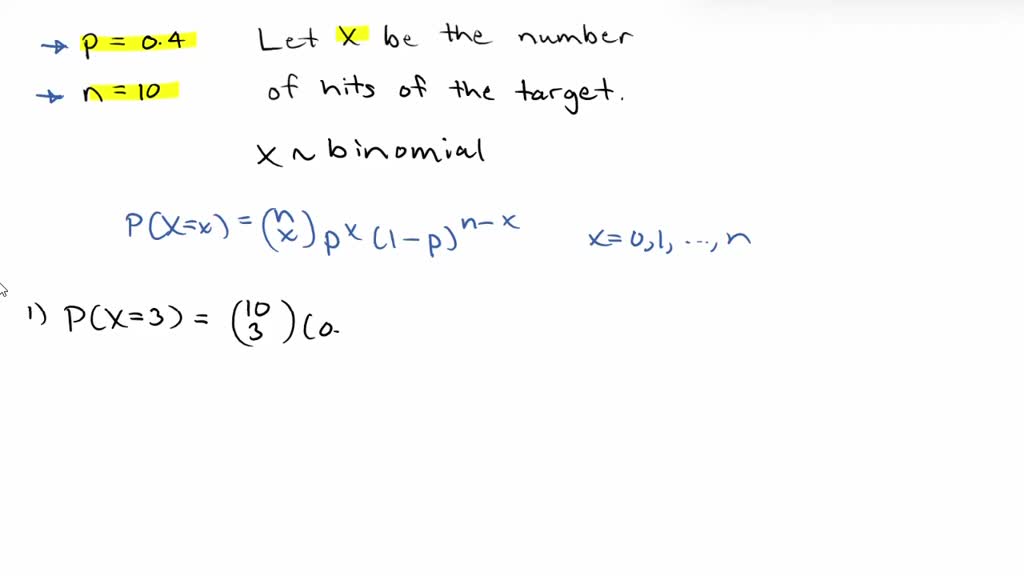 → p = 0.4 Let X be the number
→ n = 10 of hits of the target.
X ~ binomial
P(X=x) = (n x) p^x (1-p)^{n-x} x=0,1, ..., n
1) P(X=3) = (10 3) (0.